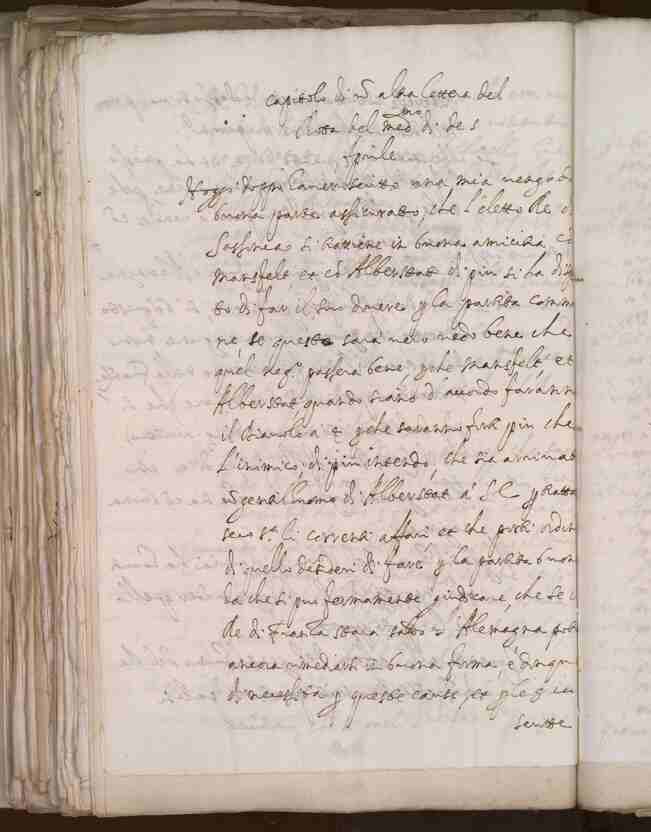 capitolo di un altra lettera del
del med.mo di de 5
Aprile
Hoggi doppi haver scritto una mia
buona parte assicurato, che l'eletto Re
si trattiene in buona amicitia, co
Mansfelt, et co Alberstat di piu si ha
to di far il suo dovere p la partita comm
ne, se questo sarà vero vedo bene che
quel neg.o passerà bene, p che Mansfelt, et
Alberstat quando siano d'accordo farann
il Diavolo a 4 p che saranno forti piu che
L'inimico, di piu intendo, che sia arrivat
un gentilhuomo di Alberstat a S. E. p tratta
seco s.a li correnti affari et che porti ordin
di quello desideri di fare, p la partita buon
ta che si puo fermamente giudicare, che se
Re di Franza starà saldo in Alemagna pot
ancora rimediarsi in buona forma, è dunqu
di necessità p queste cause, et p le
scritte